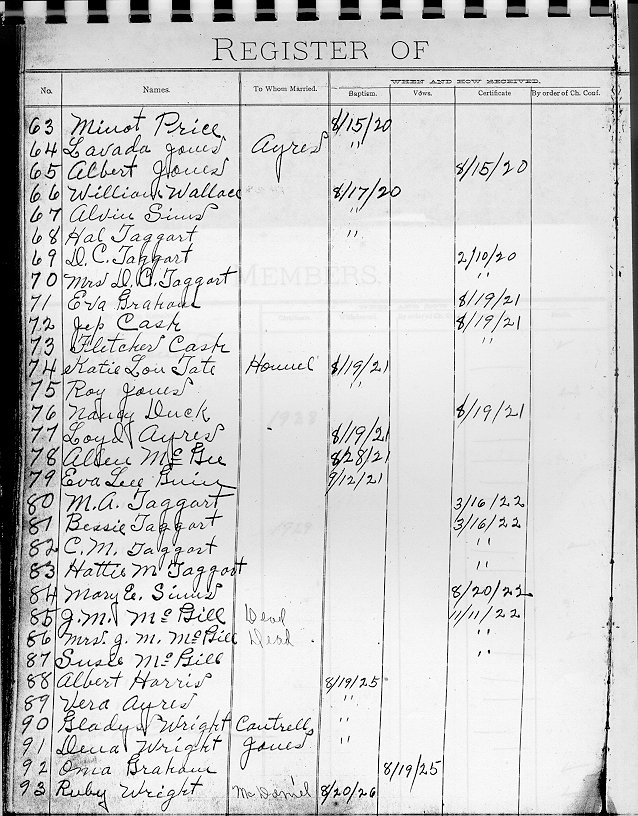 REGISTER OF
WHEN AND HOW RECEIVED.
No. Names. To Whom Married. Baptism. Vows. Certificate By order of Ch. Conf.
63 Minot Price 8/15/20
64 Lavada Jones Ayres "
65 Albert Jones 8/15/20
66 William Wallace 8/17/20
67 Alvin Sims "
68 Hal Taggart "
69 D.C. Taggart 2/10/20
70 Mrs D.C. Taggart "
71 Eva Graham 8/19/21
72 Jep Cash 8/19/21
73 Fletcher Cash "
74 Katie Lou Tate 8/19/21
75 Roy Jones "
76 Nancy Duck 8/19/21
77 Loyd Ayres 8/19/21
78 Allen McGee 8/28/21
79 Eva Lee 9/12/21
80 M.A. Taggart 3/16/22
81 Bessie Taggart 3/16/22
82 C.M. Taggart "
83 Hattie M Taggart "
84 Mary E. Sims 8/20/22
85 J.M. McGill Dead 11/11/22
86 Mrs. J.M. McGill Dead "
87 Susie McGill "
88 Albert Harris 8/19/25
89 Vera Ayres "
90 Gladys Wright Cantrell "
91 Dena Wright Jones "
92 Oma Graham 8/19/25
93 Ruby Wright McDaniel 8/20/26
MEMBERS.
1928
1929